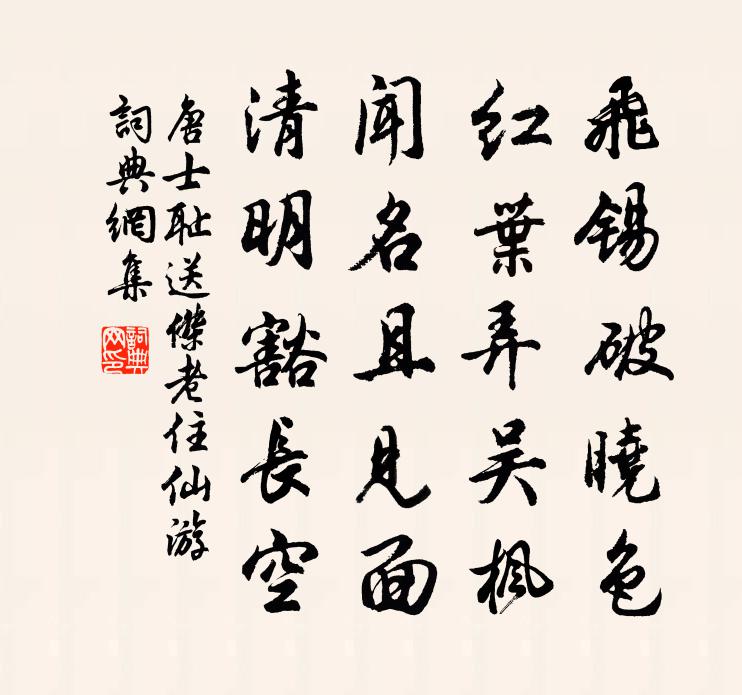 飛錫破曉色
紅葉弄吳楓
聞名且見面
清明豁長空
唐士耻送傑老住仙游
詞典網集
詞典網印